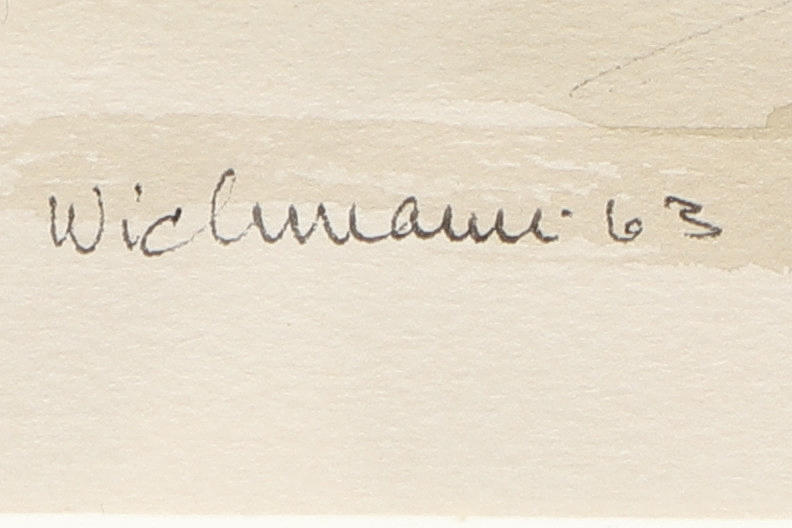 Wichmann · 63